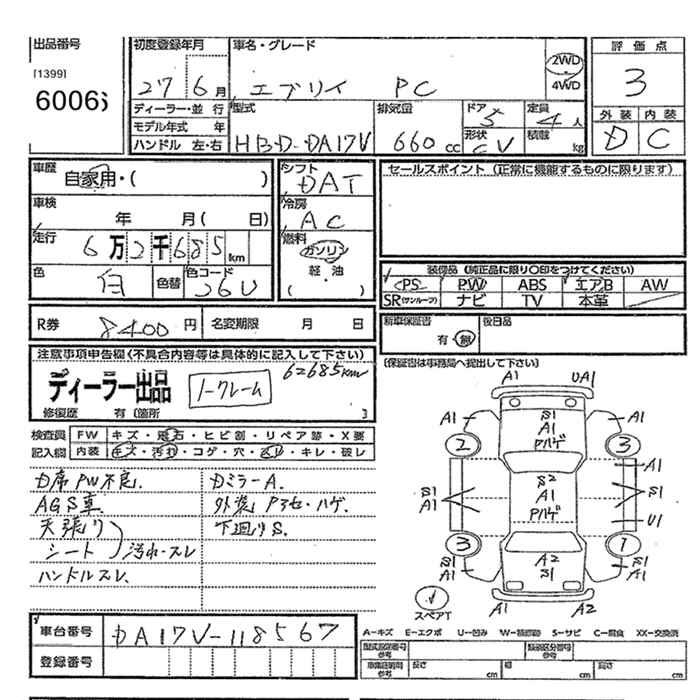 出品番号
[1399]
6006
初度登録年月
27 6月
車名・グレード
エブリイ PC
2WD
4WD
評価点
3
外装 内装
D C
ディーラー・並行
モデル年式 年
ハンドル 左・右
型式
HBD-DA17V
排気量
660 cc
ドア
5
形状
CV
定員
4人
積載
kg
車歴
自家用・( )
車検
年 月( 日)
走行
6万2千685km
色
白
色替
色コード
26U
シフト
DAT
冷房
AC
燃料
ガソリン
軽・油
( )
セールスポイント(正常に機能するものに限ります)
装備品(純正品に限り〇印をつけてください)
PS PW ABS エアB AW
SR(サンルーフ) ナビ TV 本革
R券
8400円
名変期限 月 日
新車保証書
有・無
後日品
(保証書は事務局へ提出して下さい)
注意事項申告欄(不具合内容等は具体的に記入して下さい)
62685km
ディーラー出品 ノークレーム
修復歴 有〔箇所 〕
検査員
記入欄
FW キズ・飛石・ヒビ割・リペア跡・X要
内装 キズ・汚れ・コゲ・穴・スレ・キレ・破レ
D席PW不良.
AGS車.
天張り
シート
汚れ・スレ
ハンドルスレ.
DミラーA.
外装Pヤセ・ハゲ.
下廻りS.
A1 UA1
A1 S1 A1 Pハゲ A1
2 3
A1
S1 A1 S2 A1 Pハゲ S1
U1
3 1
S1 A1 A2 S1 S1 A1
A1 A2
スペアT
車台番号
DA17V-118567
登録番号
A−キズ E−エクボ U−凹み W−補修跡 S−サビ C−腐食 XX−交換済
型式指定番号
参考
類別区分番号
参考
車庫証明用
参考
長さ cm 幅 cm 高さ cm